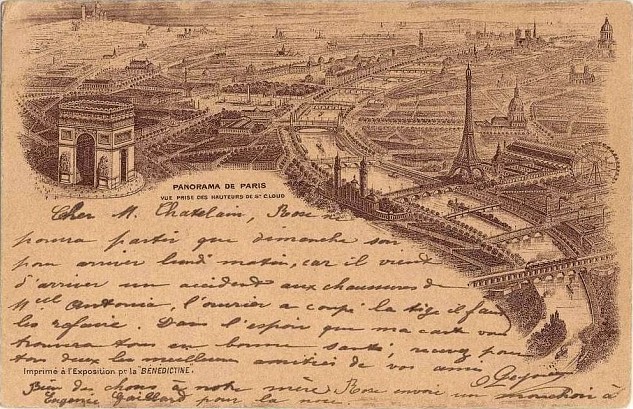 PANORAMA DE PARIS
VUE PRISE DES HAUTEURS DE St CLOUD
Cher M. Chatelain, Rose ne
pourra partir que dimanche soir
pour arriver lundi matin, car il vient
d'arriver un accident aux chaussures de
Melle Antonia, l'ouvrier a coupé la tige il faut
les refaire. Dans l'espoir que ma carte vous
trouvera tous en bonne santé, recevez pour
tous deux les meilleures amitiés de vos amis
Imprimé à l'Exposition pr la BÉNÉDICTINE.
Bien des choses à notre mère. Rose envoie un mouchoir à
Eugénie Gaillard pour la